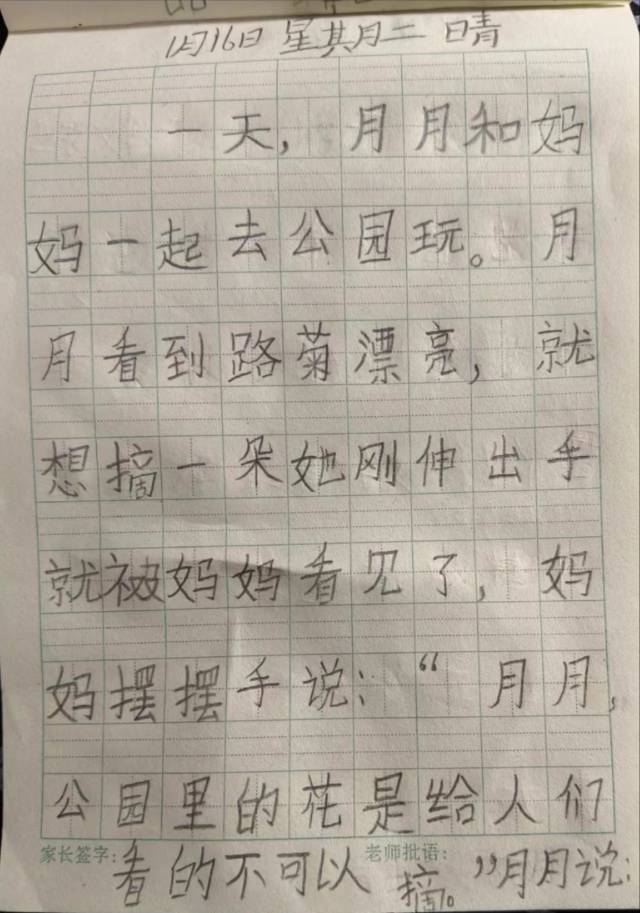 1月16日 星其月二 晴
一天，月月和妈
妈一起去公园玩。月
月看到路菊漂亮，就
想摘一朵她刚伸出手
就被妈妈看见了，妈
妈摆摆手说：“月月，
公园里的花是给人们
家长签字：看的不可以 老师批语：摘。”月月说：